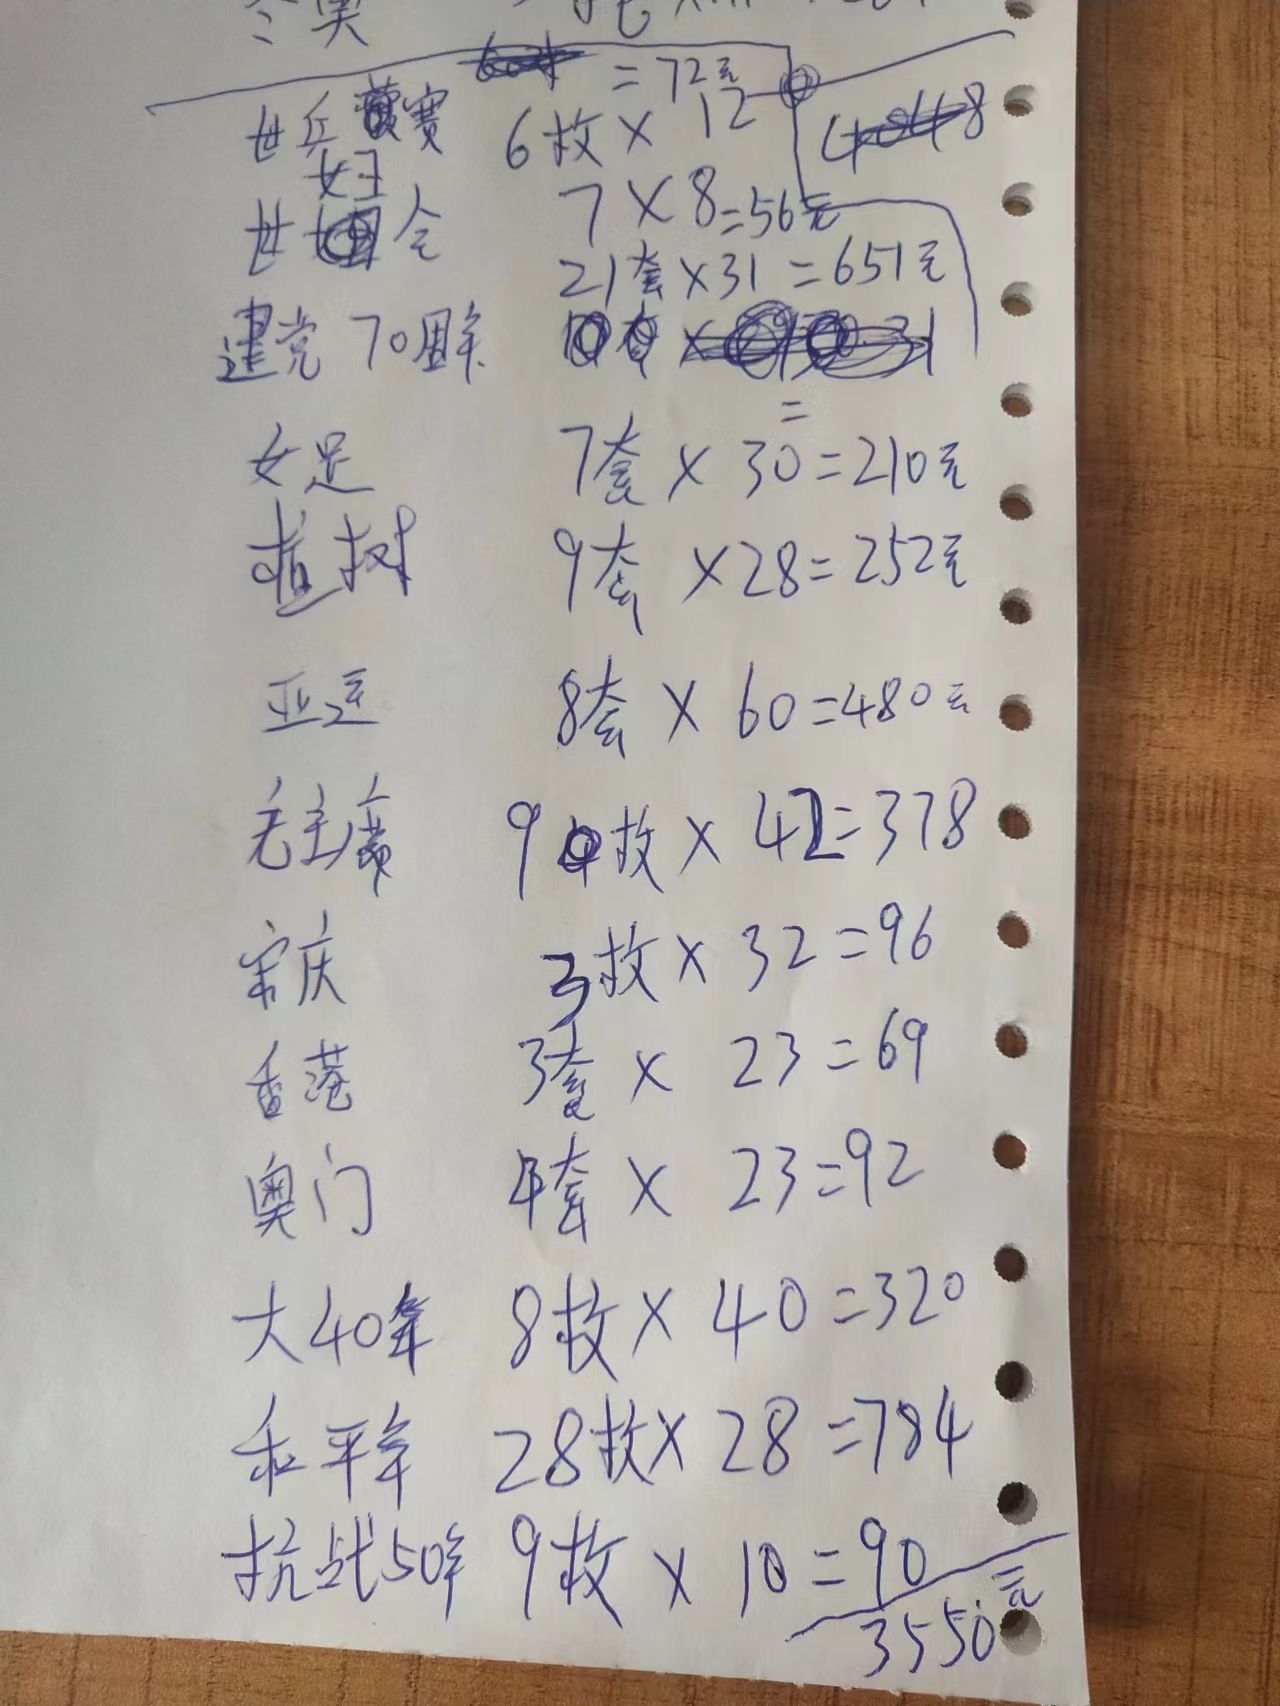 冬奥
=72元
世乒赛 6枚 × 12
4048
妇
世会 7 × 8=56元
21套 × 31 = 651元
建党70周年
=
女足 7套 × 30=210元
植树 9套 × 28=252元
亚运 8套 × 60=480元
毛主席 9枚 × 42=378
宋庆 3枚 × 32=96
香港 3套 × 23=69
奥门 4套 × 23=92
大40年 8枚 × 40=320
和平年 28枚 × 28=784
抗战50年 9枚 × 10=90
3550元